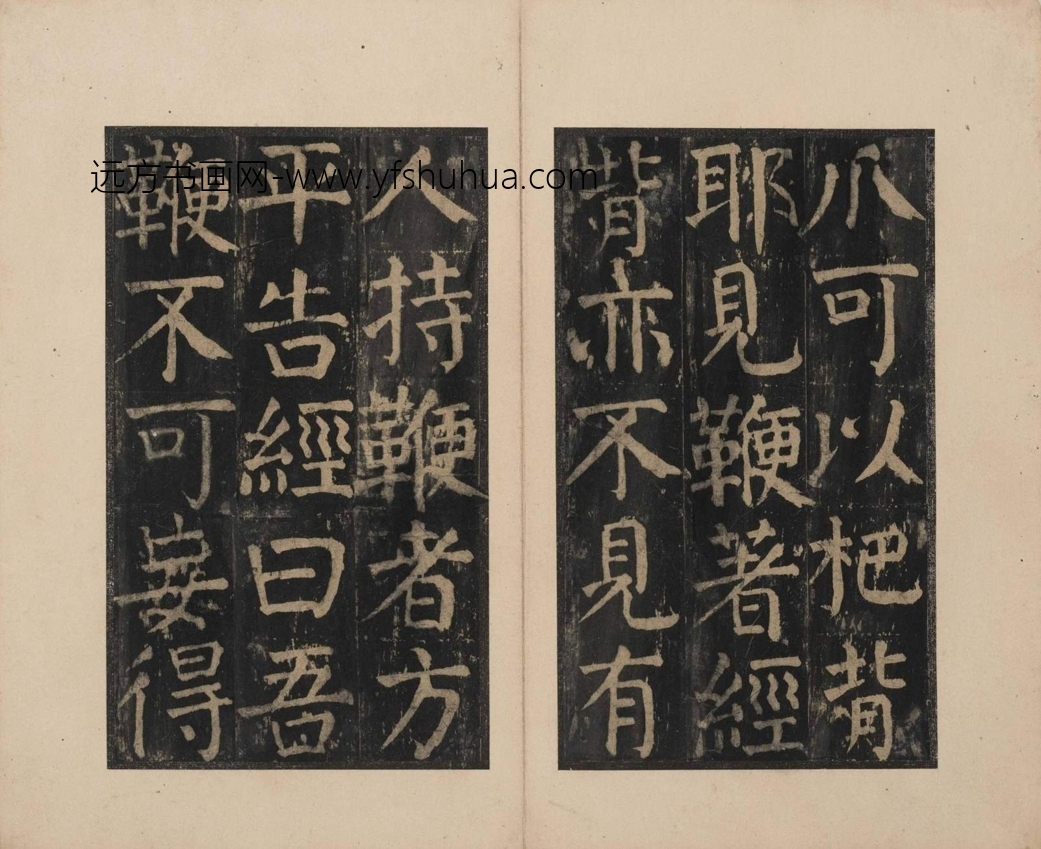 爪可以杷背
耶見鞭著經
背亦不見有
人持鞭者方
平告經曰吾
鞭不可妄得
远方书画网-www.yfshuhua.com